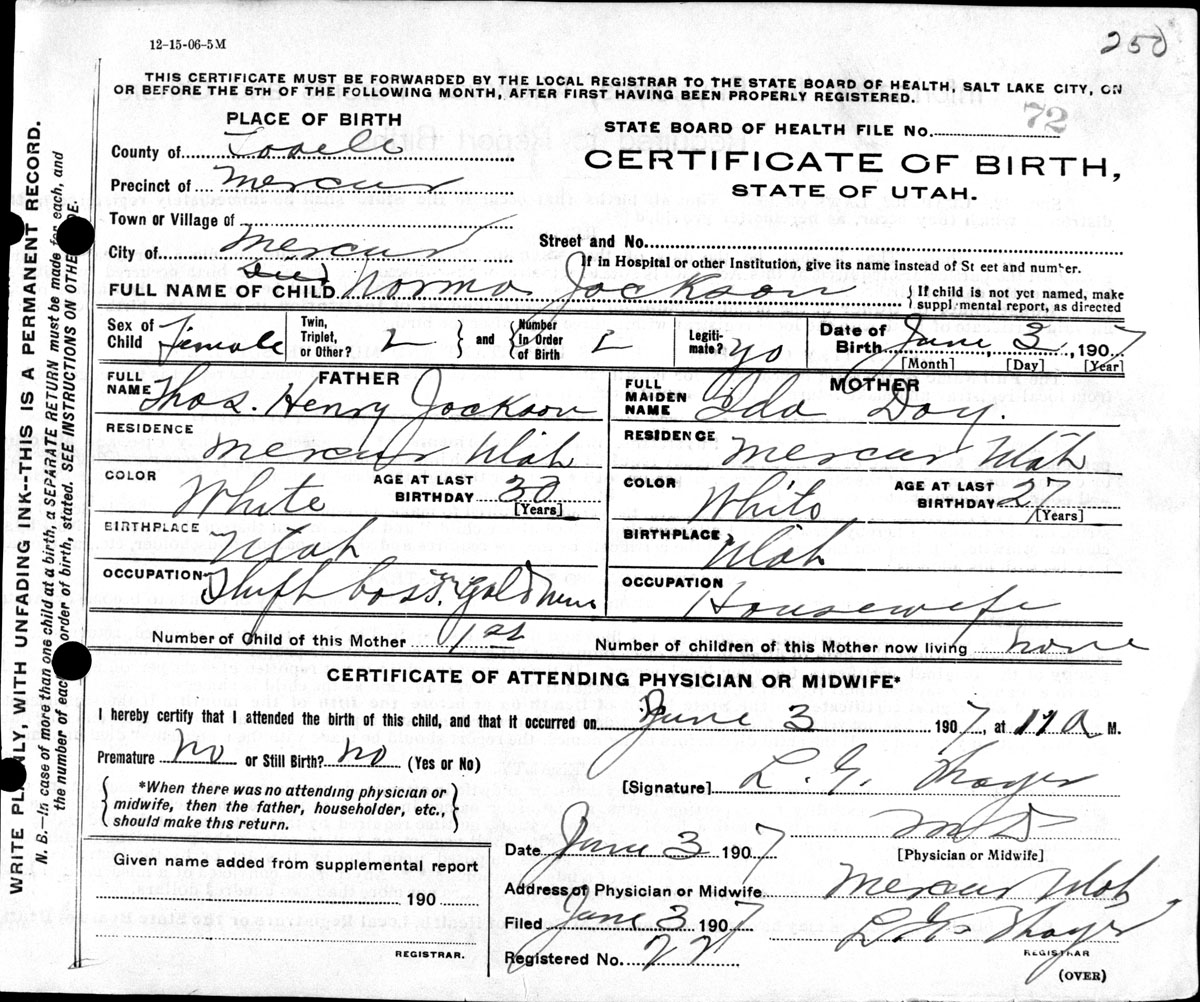 12-15-06-5M
250
THIS CERTIFICATE MUST BE FORWARDED BY THE LOCAL REGISTRAR TO THE STATE BOARD OF HEALTH, SALT LAKE CITY, ON
OR BEFORE THE 5TH OF THE FOLLOWING MONTH, AFTER FIRST HAVING BEEN PROPERLY REGISTERED.
WRITE PLAINLY, WITH UNFADING INK--THIS IS A PERMANENT RECORD.
N. B.—In case of more than one child at a birth, a SEPARATE RETURN must be made for each, and
the number of each order of birth, stated. SEE INSTRUCTIONS ON OTHER
PLACE OF BIRTH
STATE BOARD OF HEALTH FILE No. 72
County of Tooele
CERTIFICATE OF BIRTH,
Precinct of Mercur
STATE OF UTAH.
Town or Village of
City of Mercur
Street and No.
If in Hospital or other Institution, give its name instead of St eet and number.
FULL NAME OF CHILD Norma Jackson
If child is not yet named, make
supplmental report, as directed
Sex of Child Female
Twin, Triplet, or Other?
and
Number in Order of Birth
Legiti-mate? yo
Date of Birth June 3, 1907
[Month] [Day] [Year]
FATHER
MOTHER
FULL NAME Thos. Henry Jackson
FULL MAIDEN NAME Ida Day.
RESIDENCE Mercur Utah
RESIDENCE Mercur Utah
COLOR White AGE AT LAST BIRTHDAY 30 [Years]
COLOR White AGE AT LAST BIRTHDAY 27 [Years]
BIRTHPLACE Utah
BIRTHPLACE Utah
OCCUPATION boss gold
OCCUPATION Housewife
Number of Child of this Mother 1st
Number of children of this Mother now living none
CERTIFICATE OF ATTENDING PHYSICIAN OR MIDWIFE*
I hereby certify that I attended the birth of this child, and that it occurred on June 3 1907, at 11 a M.
Premature No or Still Birth? No (Yes or No)
[Signature] L. G. Thayer
*When there was no attending physician or
midwife, then the father, householder, etc.,
should make this return.
M D
[Physician or Midwife]
Date June 3 1907
Given name added from supplemental report
190
Address of Physician or Midwife Mercur Utah
Filed June 3 1907
L. G. Thayer
REGISTRAR
Registered No.
REGISTRAR.
(OVER)